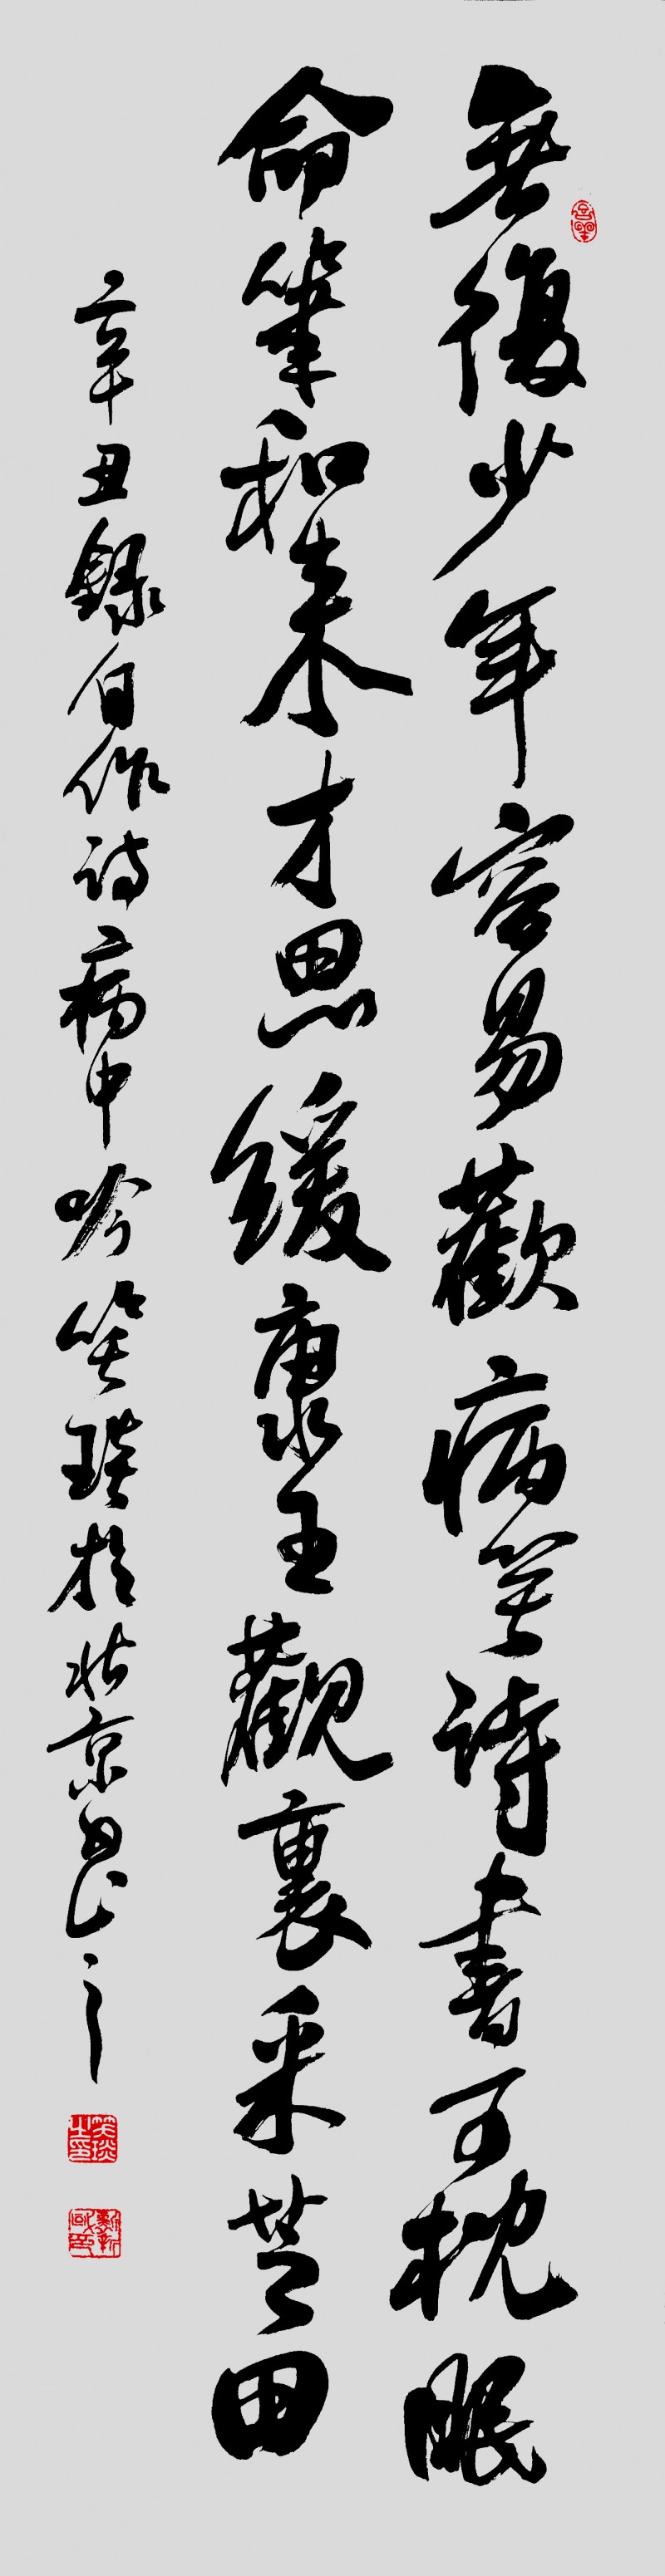 無復少年容易歡病詩書可枕眠
命筆和來才思緩康王觀裏采芝田
辛丑錄自作詩病中吟笑琰於北京
笑琰之印